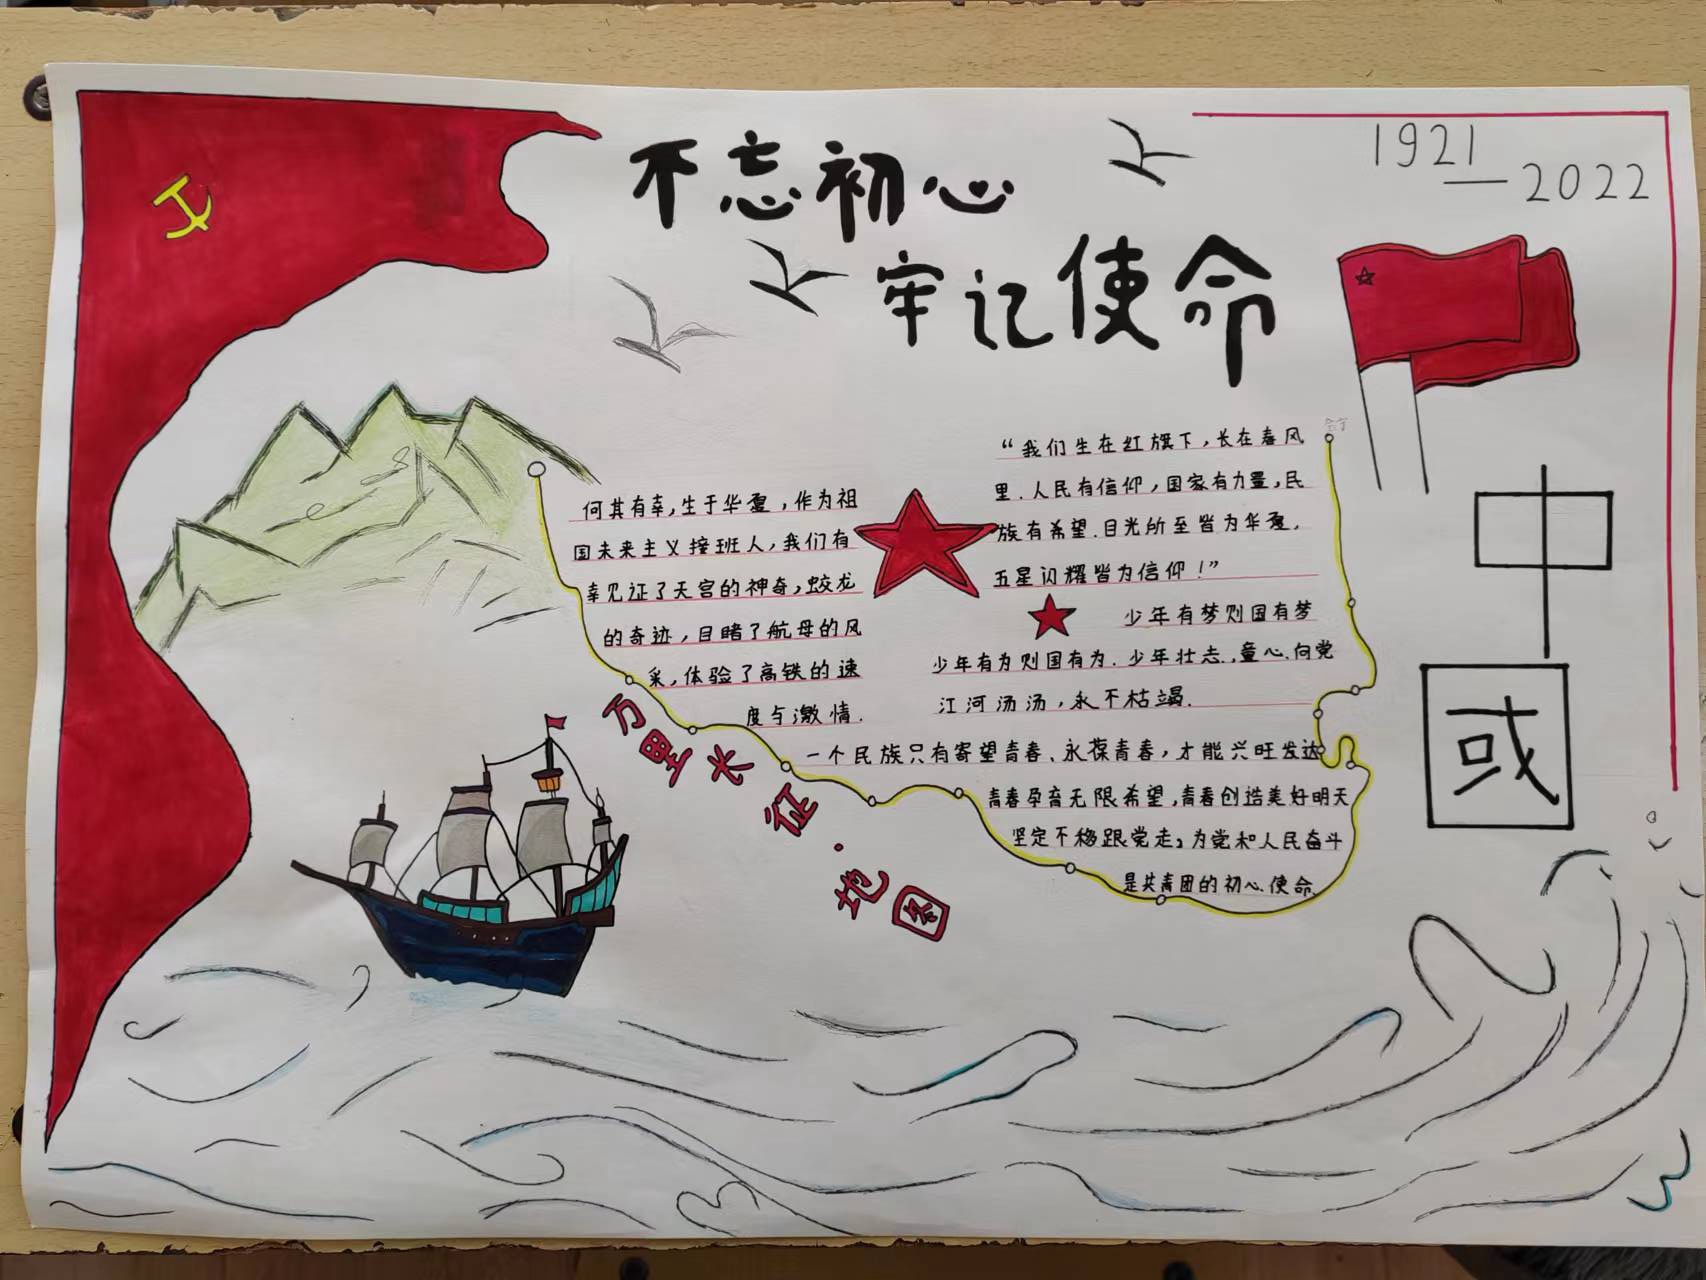 不忘初心
牢记使命
1921
—2022
何其有幸,生于华夏,作为祖
国未来主义接班人,我们有
幸见证了天宫的神奇,蛟龙
的奇迹,目睹了航母的风
采,体验了高铁的速
度与激情.
“我们生在红旗下,长在春风
里.人民有信仰,国家有力量,民
族有希望.目光所至皆为华夏,
五星闪耀皆为信仰!”
少年有梦则国有梦
少年有为则国有为.少年壮志,童心向党
江河汤汤,永不枯竭.
一个民族只有寄望青春、永葆青春,才能兴旺发达
青春孕育无限希望,青春创造美好明天
坚定不移跟党走,为党和人民奋斗
是共青团的初心使命
万里长征·地图
中國